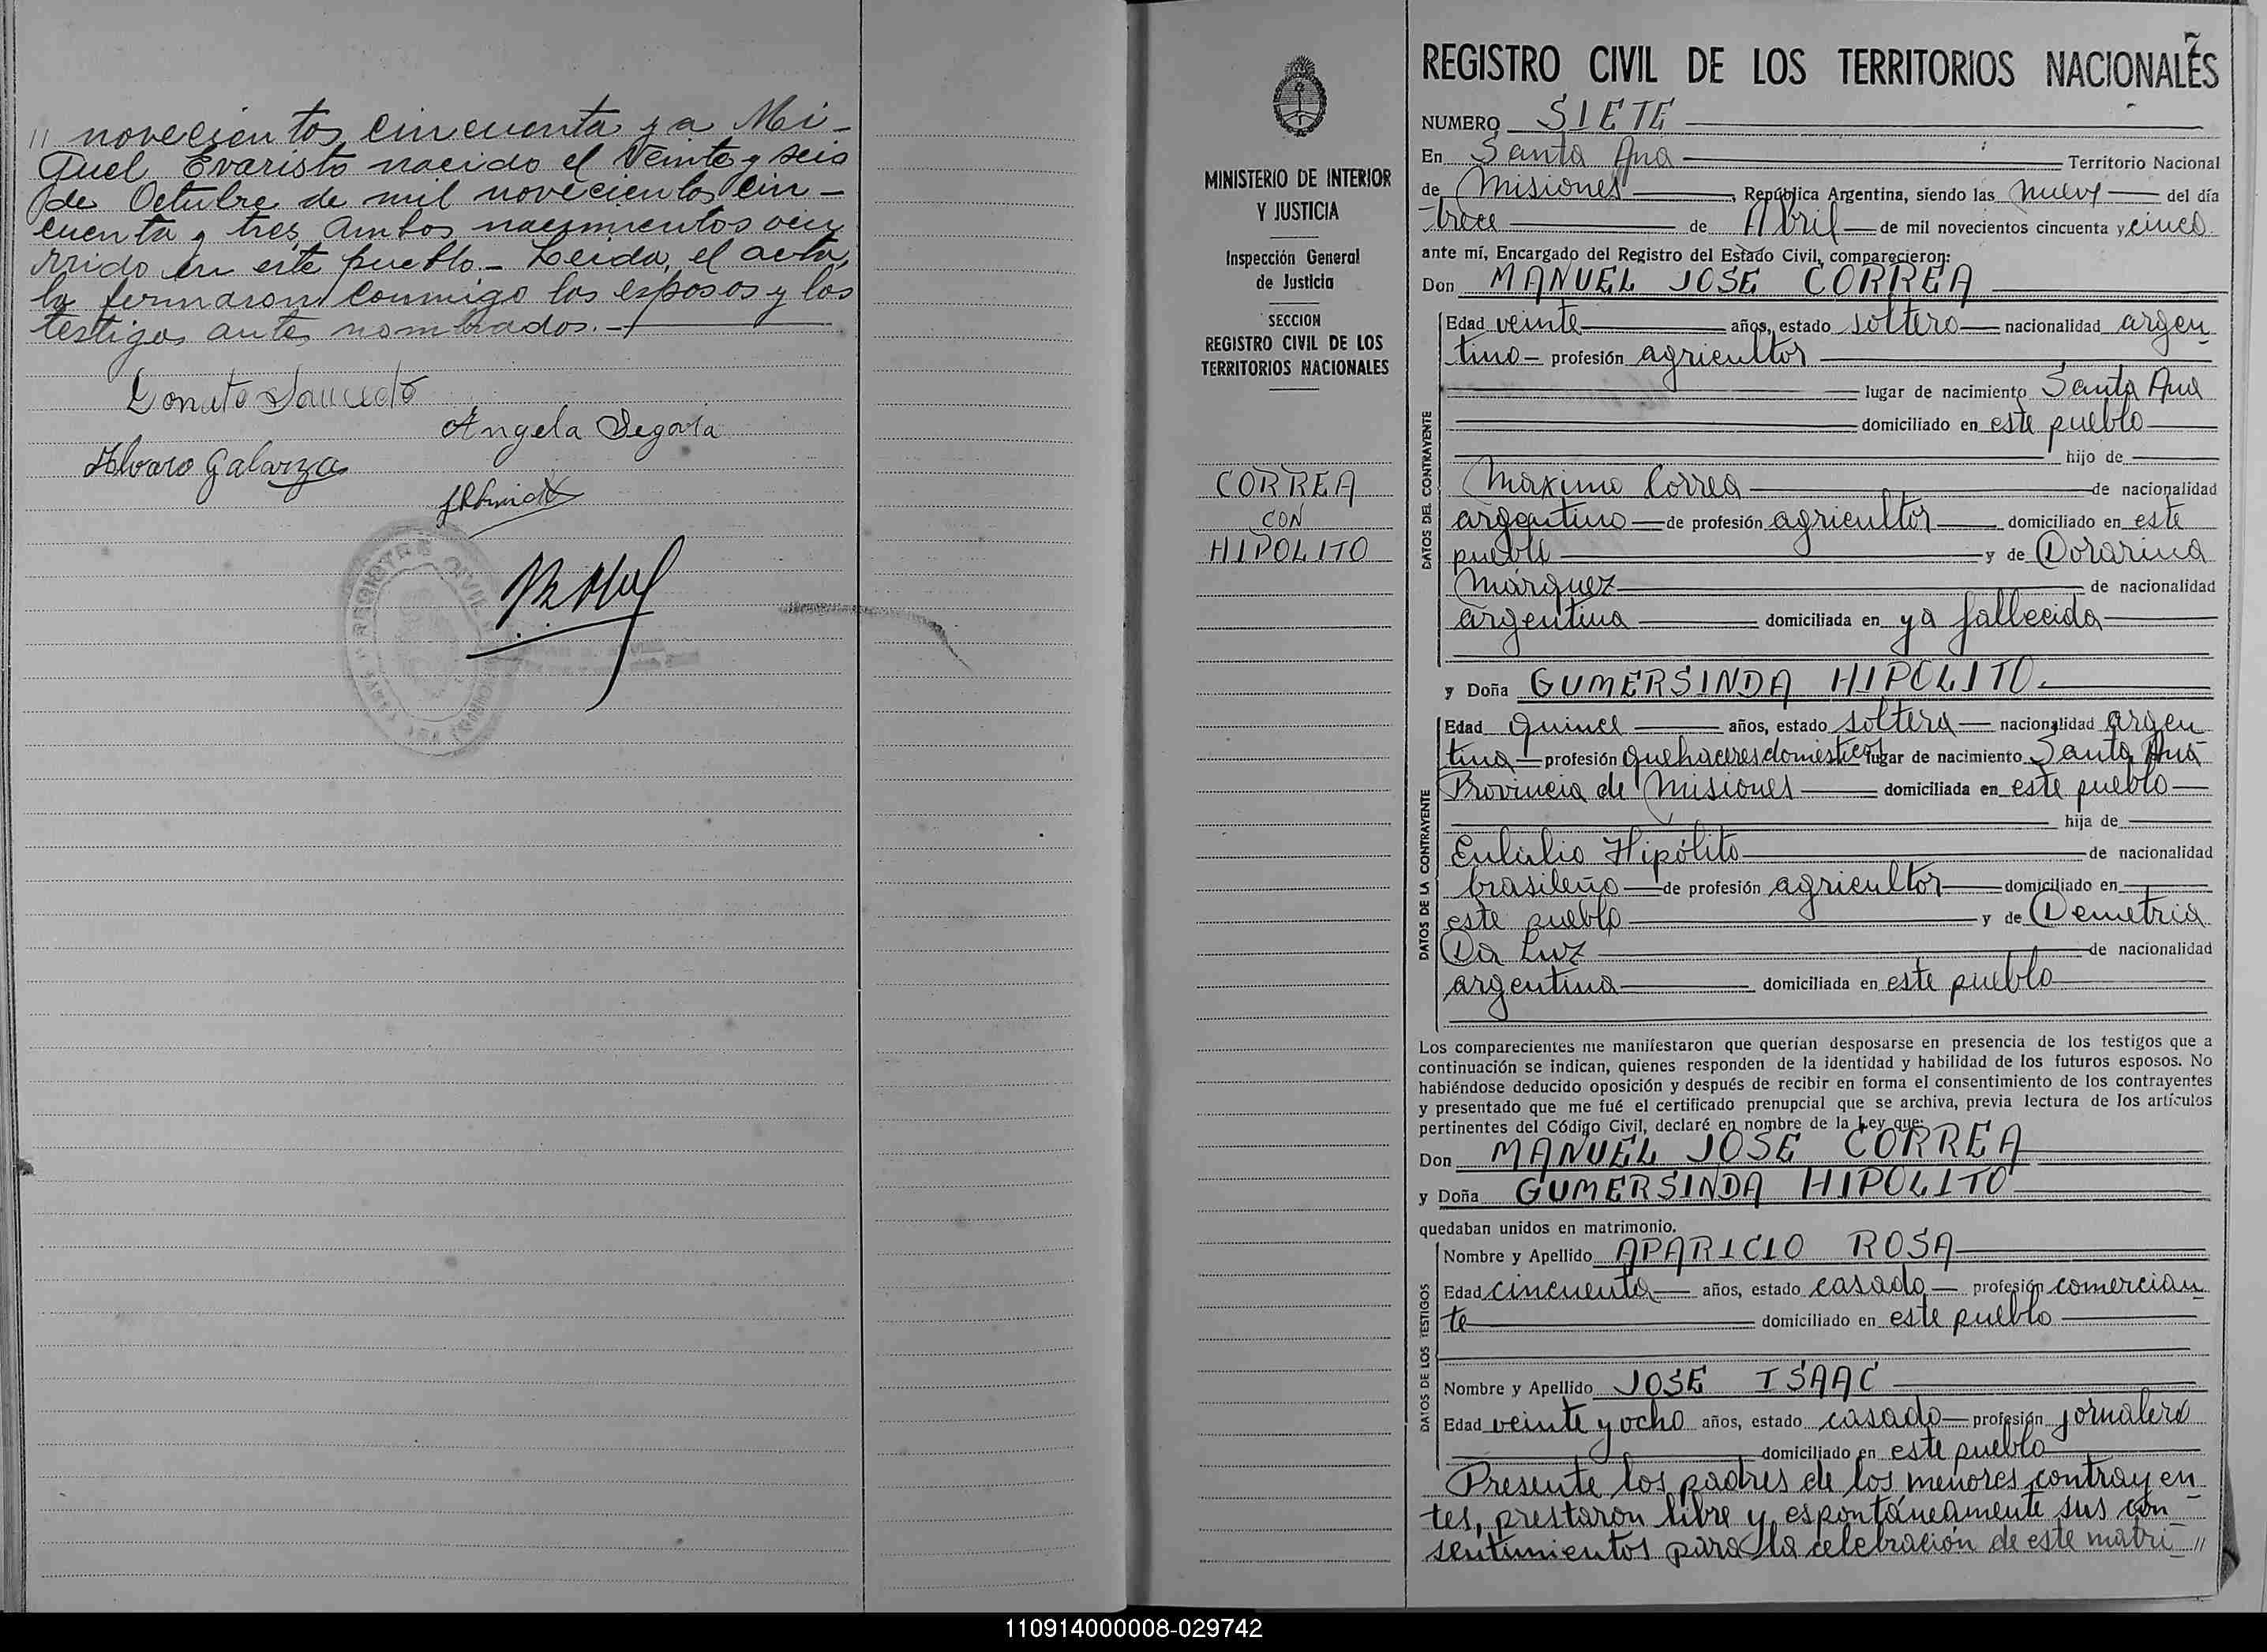 // novecientos cincuenta y a Mi-
guel Evaristo nacido el veinte y seis
de Octubre de mil novecientos cin-
cuenta y tres, ambos nacimientos ocu
rrido en este pueblo.- Leida, el acta,
la firmaron conmigo los esposos y los
testigos antes nombrados.-
Donato Saucedo
Angela Segovia
Alvaro Galarza
REGISTRO CIVIL
MINISTERIO DE INTERIOR
Y JUSTICIA
Inspección General
de Justicia
SECCION
REGISTRO CIVIL DE LOS
TERRITORIOS NACIONALES
CORREA
CON
HIPOLITO
7
REGISTRO CIVIL DE LOS TERRITORIOS NACIONALES
NUMERO SIETE
En Santa Ana Territorio Nacional
de Misiones, República Argentina, siendo las nueve del día
trece de Abril de mil novecientos cincuenta y cinco
ante mí, Encargado del Registro del Estado Civil, comparecieron:
Don MANUEL JOSE CORREA
DATOS DEL CONTRAYENTE
Edad veinte años, estado soltero nacionalidad argen
tino profesión agricultor
lugar de nacimiento Santa Ana
domiciliado en este pueblo
hijo de
Maximo Correa de nacionalidad
argentino de profesión agricultor domiciliado en este
pueblo y de Dorarina
Márquez de nacionalidad
argentina domiciliada en ya fallecida
y Doña GUMERSINDA HIPOLITO.
DATOS DE LA CONTRAYENTE
Edad quince años, estado soltera nacionalidad argen
tina profesión quehaceres domesticos lugar de nacimiento Santa Ana
Provincia de Misiones domiciliada en este pueblo
hija de
Eulalio Hipólito de nacionalidad
brasileño de profesión agricultor domiciliado en
este pueblo y de Demetria
Da Luz de nacionalidad
argentina domiciliada en este pueblo
Los comparecientes me manifestaron que querían desposarse en presencia de los testigos que a
continuación se indican, quienes responden de la identidad y habilidad de los futuros esposos. No
habiéndose deducido oposición y después de recibir en forma el consentimiento de los contrayentes
y presentado que me fué el certificado prenupcial que se archiva, previa lectura de los artículos
pertinentes del Código Civil, declaré en nombre de la Ley que:
Don MANUEL JOSE CORREA
y Doña GUMERSINDA HIPOLITO
quedaban unidos en matrimonio.
DATOS DE LOS TESTIGOS
Nombre y Apellido APARICIO ROSA
Edad cincuenta años, estado casado profesión comercian
te domiciliado en este pueblo
Nombre y Apellido JOSE ISAAC
Edad veinte y ocho años, estado casado profesión jornalero
domiciliado en este pueblo
Presente los padres de los menores contrayen
tes, prestaron libre y espontáneamente sus con
sentimientos para la celebración de este matri-//
110914000008-029742